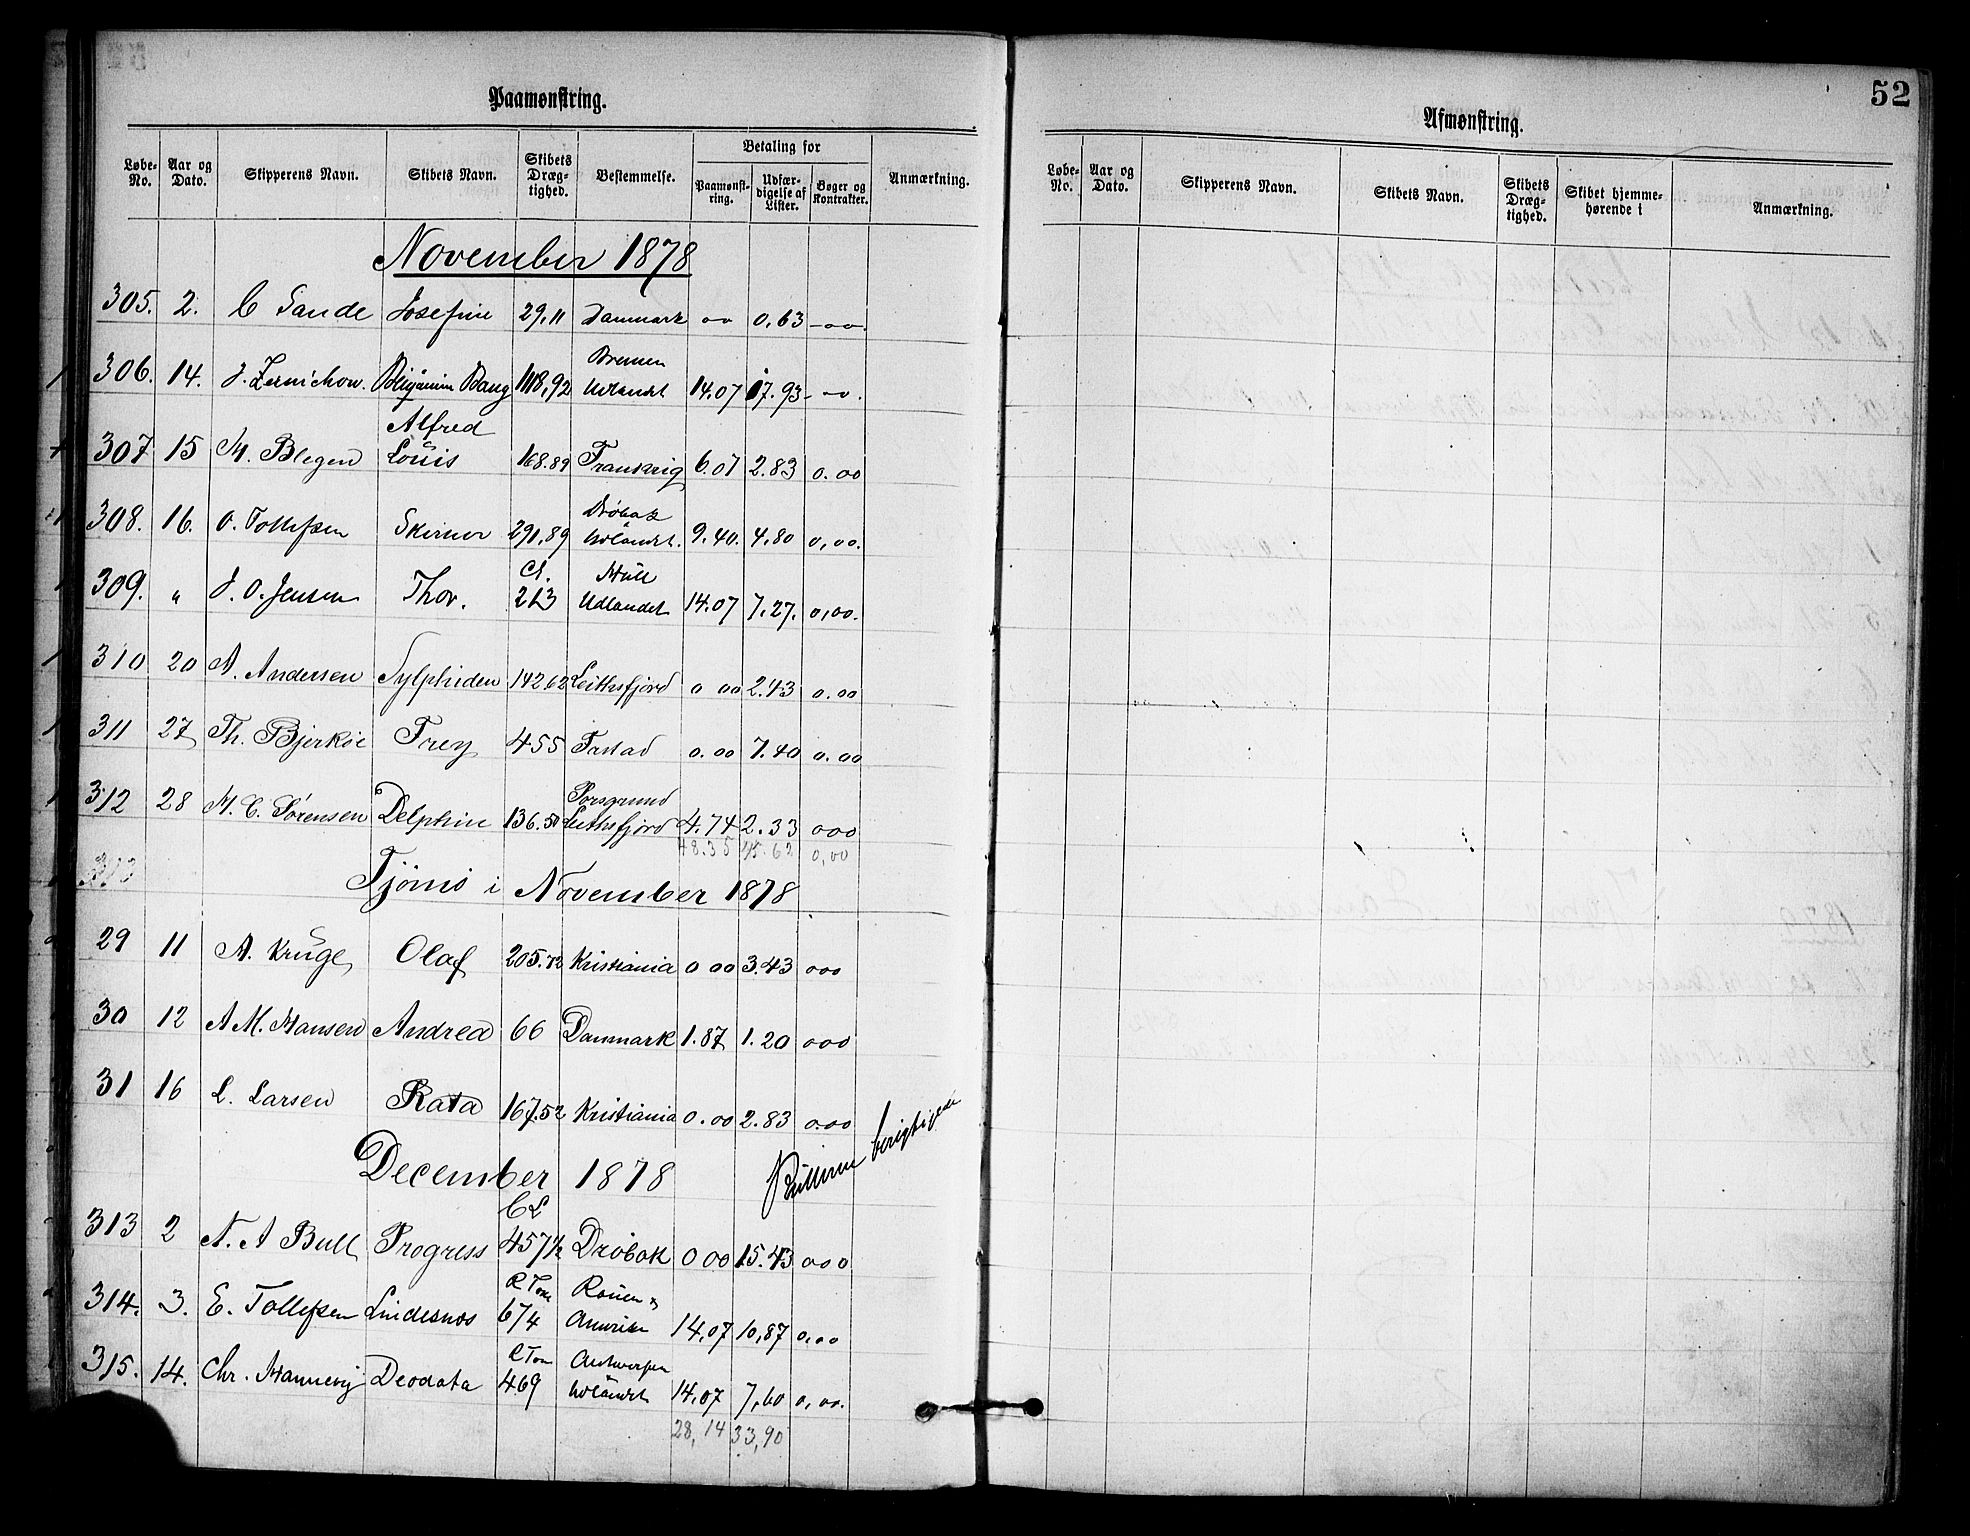 52
Paamønstring.
Løbe-No. Aar og Dato. Skipperens Navn. Skibets Navn. Skibets Dræg-tighed. Bestemmelse. Betaling for Paamønst-ring. Udfær-digelse af Lister. Bøger og Kontrakter. Anmærkning.
November 1878
305. 2. C Sande Josefine 29,11 Danmark 00 0,63 00
Bremen
306. 14. J. Zernichow. Benjamin Bang 1118,92 Udlandet 14.07 17.93 00
Alfred
307 15 M. Blegen Louis 168.89 Frankrig 6.07 2.83 0.00
Drøbak
308. 16. O. Tollefsen Skirner 291,89 Udlandet. 9.40. 4,80 0,00.
Cl. Hull
309. " J. O. Jensen Thor. 213 Udlandet 14.07 7,27. 0,00.
310 20 A. Andersen Sylphiden 142.62 Leithsfjord 0 00 2.43 0.00
311 27 Th. Bjerkøe Frey 455 0.00 7.40 0.00
Porsgrund
312 28 M. C. Sørensen Delphin 136.50 Leithsfjord 4.74 2.33 000
48.35 45.62 0,00
313
Tjømø i November 1878
29 11 A. Kruge Olaf 205.72 Kristiania 0 00 3.43 000
30 12 A M. Hansen Andrea 66 Danmark 1.87 1.20 000
31 16 L. Larsen Rata 167.52 Kristiania 0.00 2.83 0.00
December 1878
berigtiges
CL
313 2 N. A Bull Progress 457½ Drøbak 0 00 15.43 000
R Ton Rouen &
314. 3. E. Tollefsen Lindesnæs 674 Amerika 14,07 10,87 0,00
R Ton Antwerpen
315. 14. Chr. Mannevig Deodata 469 Udlandet 14,07 7,60 0,00.
28,14 33,90
Afmønstring.
Løbe-No. Aar og Dato. Skipperens Navn. Skibets Navn. Skibets Dræg-tighed. Skibet hjemme-hørende i Anmærkning.